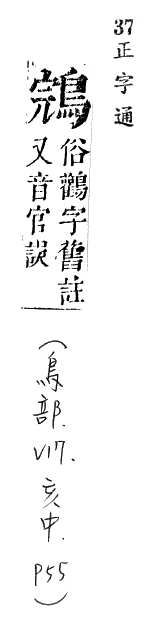 37正字通
鵍
俗鸛字舊註
又音官誤
(鳥部. V17. 亥中. P55)